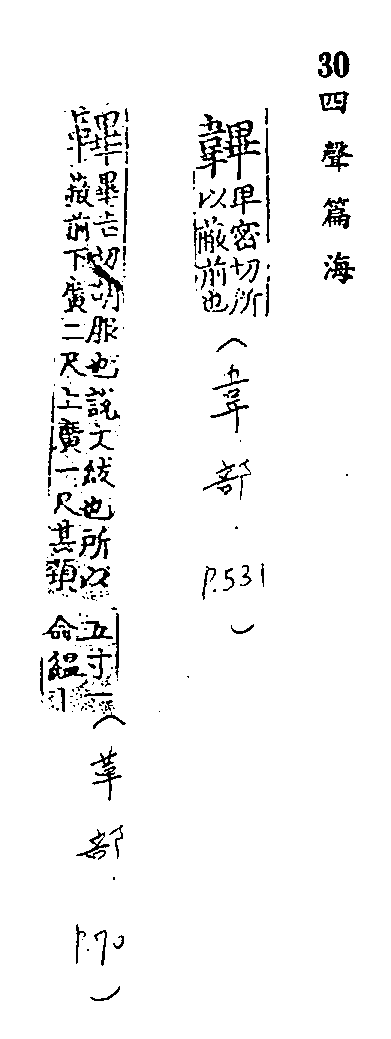 30四聲篇海
韠卑密切所
以蔽前也
(韋部.P.531)
鞸畢吉切胡服也說文紱也所以
蔽前下廣二尺上廣一尺其頸
五寸一
命縕
(革部.P.70)